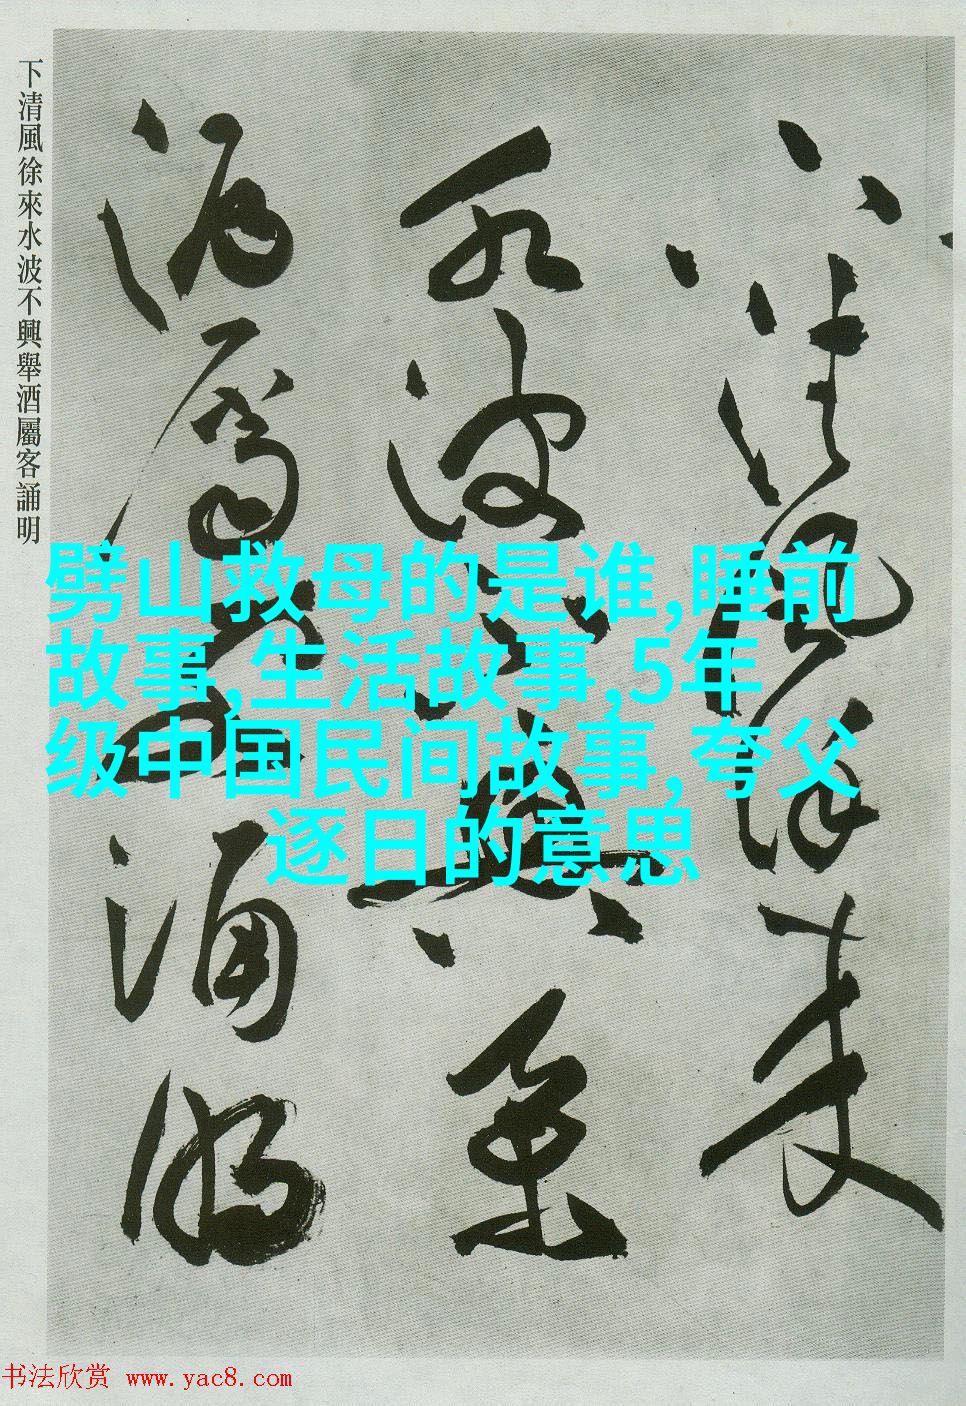 下清風徐來水波不興舉酒屬客誦明
下清風徐來
水波不興舉
酒屬客誦明
劈山救母的是谁,睡前
故事,生活故事,5年
级中国民间故事,夸父
逐日的意思
书法欣赏 www.yac8.com